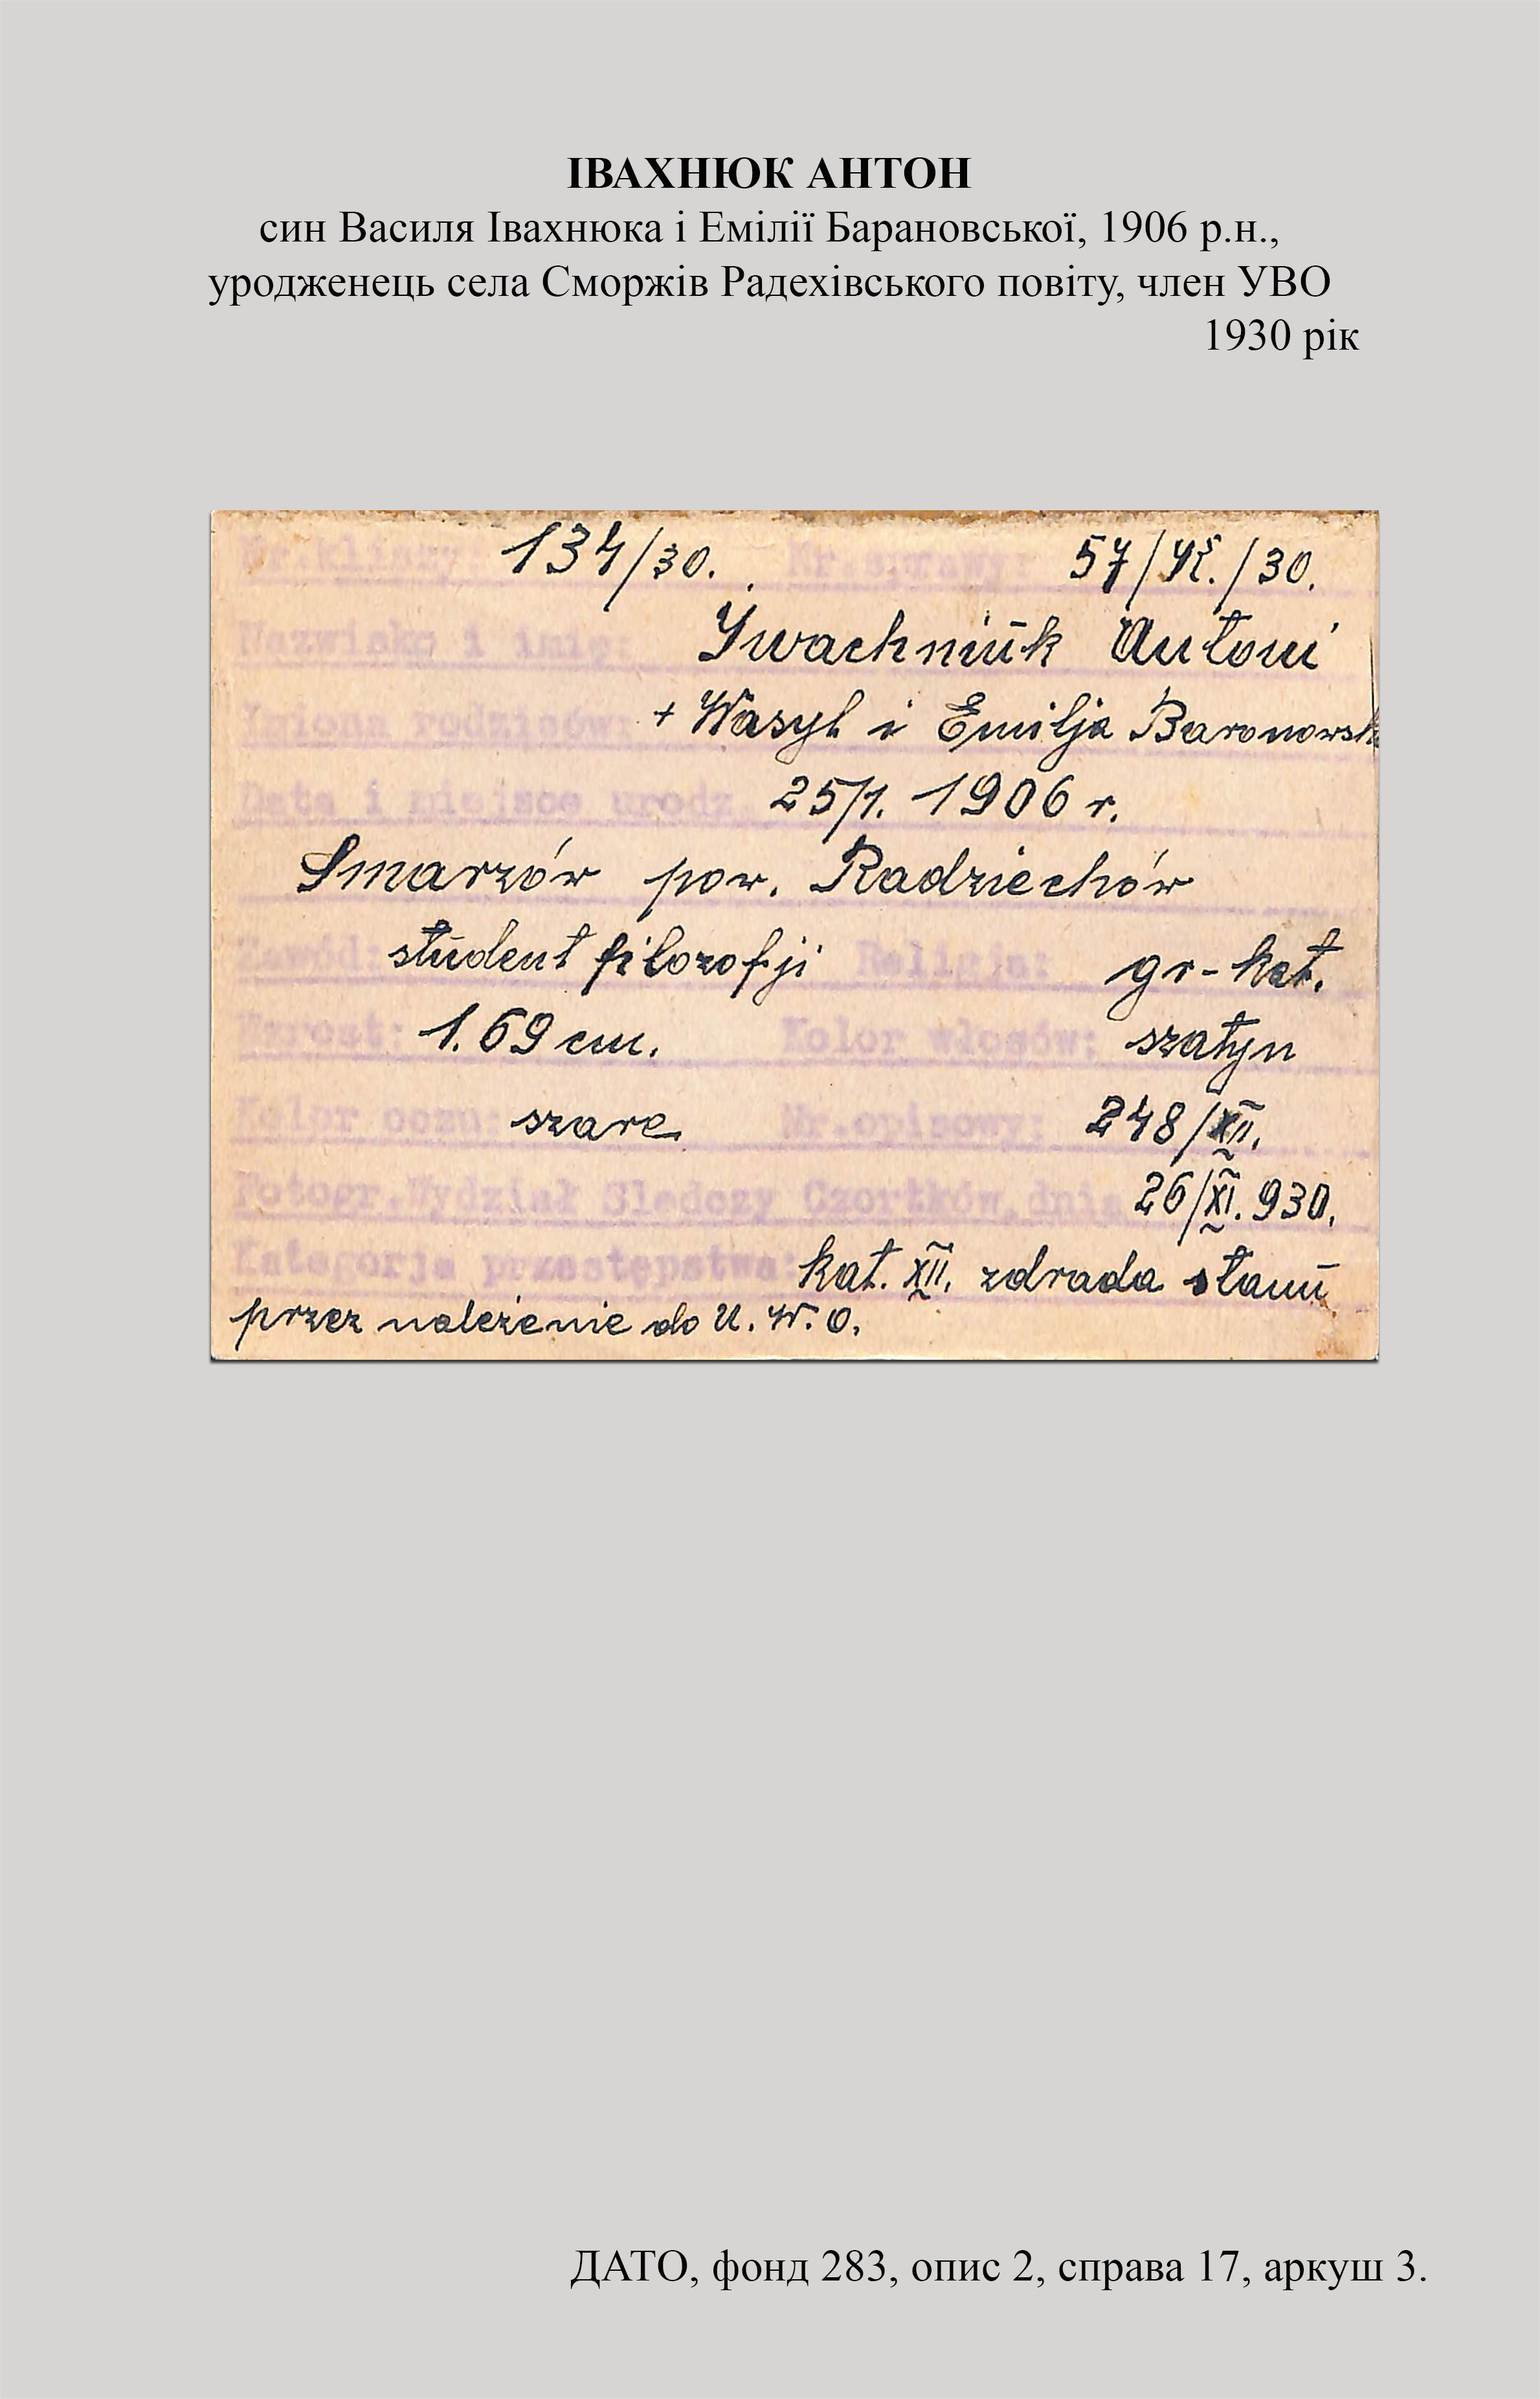 ІВАХНЮК АНТОН
син Василя Івахнюка і Емілії Барановської, 1906 р.н.,
уродженець села Сморжів Радехівського повіту, член УВО
1930 рік
Nr.kliszy: 134/30. Nr.sprawy: 57/ /30.
Nazwisko i imię: Iwachniuk Antoni
Imiona rodziców: + Wasyl i Emilja Baronowsk
Data i miejsce urodz. 25/1. 1906 r.
Smarzów pow. Radziechów
Zawód: student filozofji Religja: gr-kat.
Wzrost: 1.69 cm. Kolor włosów: szatyn
Kolor oczu: szare Nr.opisowy: 248/XII.
Fotogr.Wydział Sledczy Czortków,dnia 26/XI.930.
Kategorja przestępstwa: kat. XII. zdrada stanu
przez należenie do U.W.O.
ДАТО, фонд 283, опис 2, справа 17, аркуш 3.